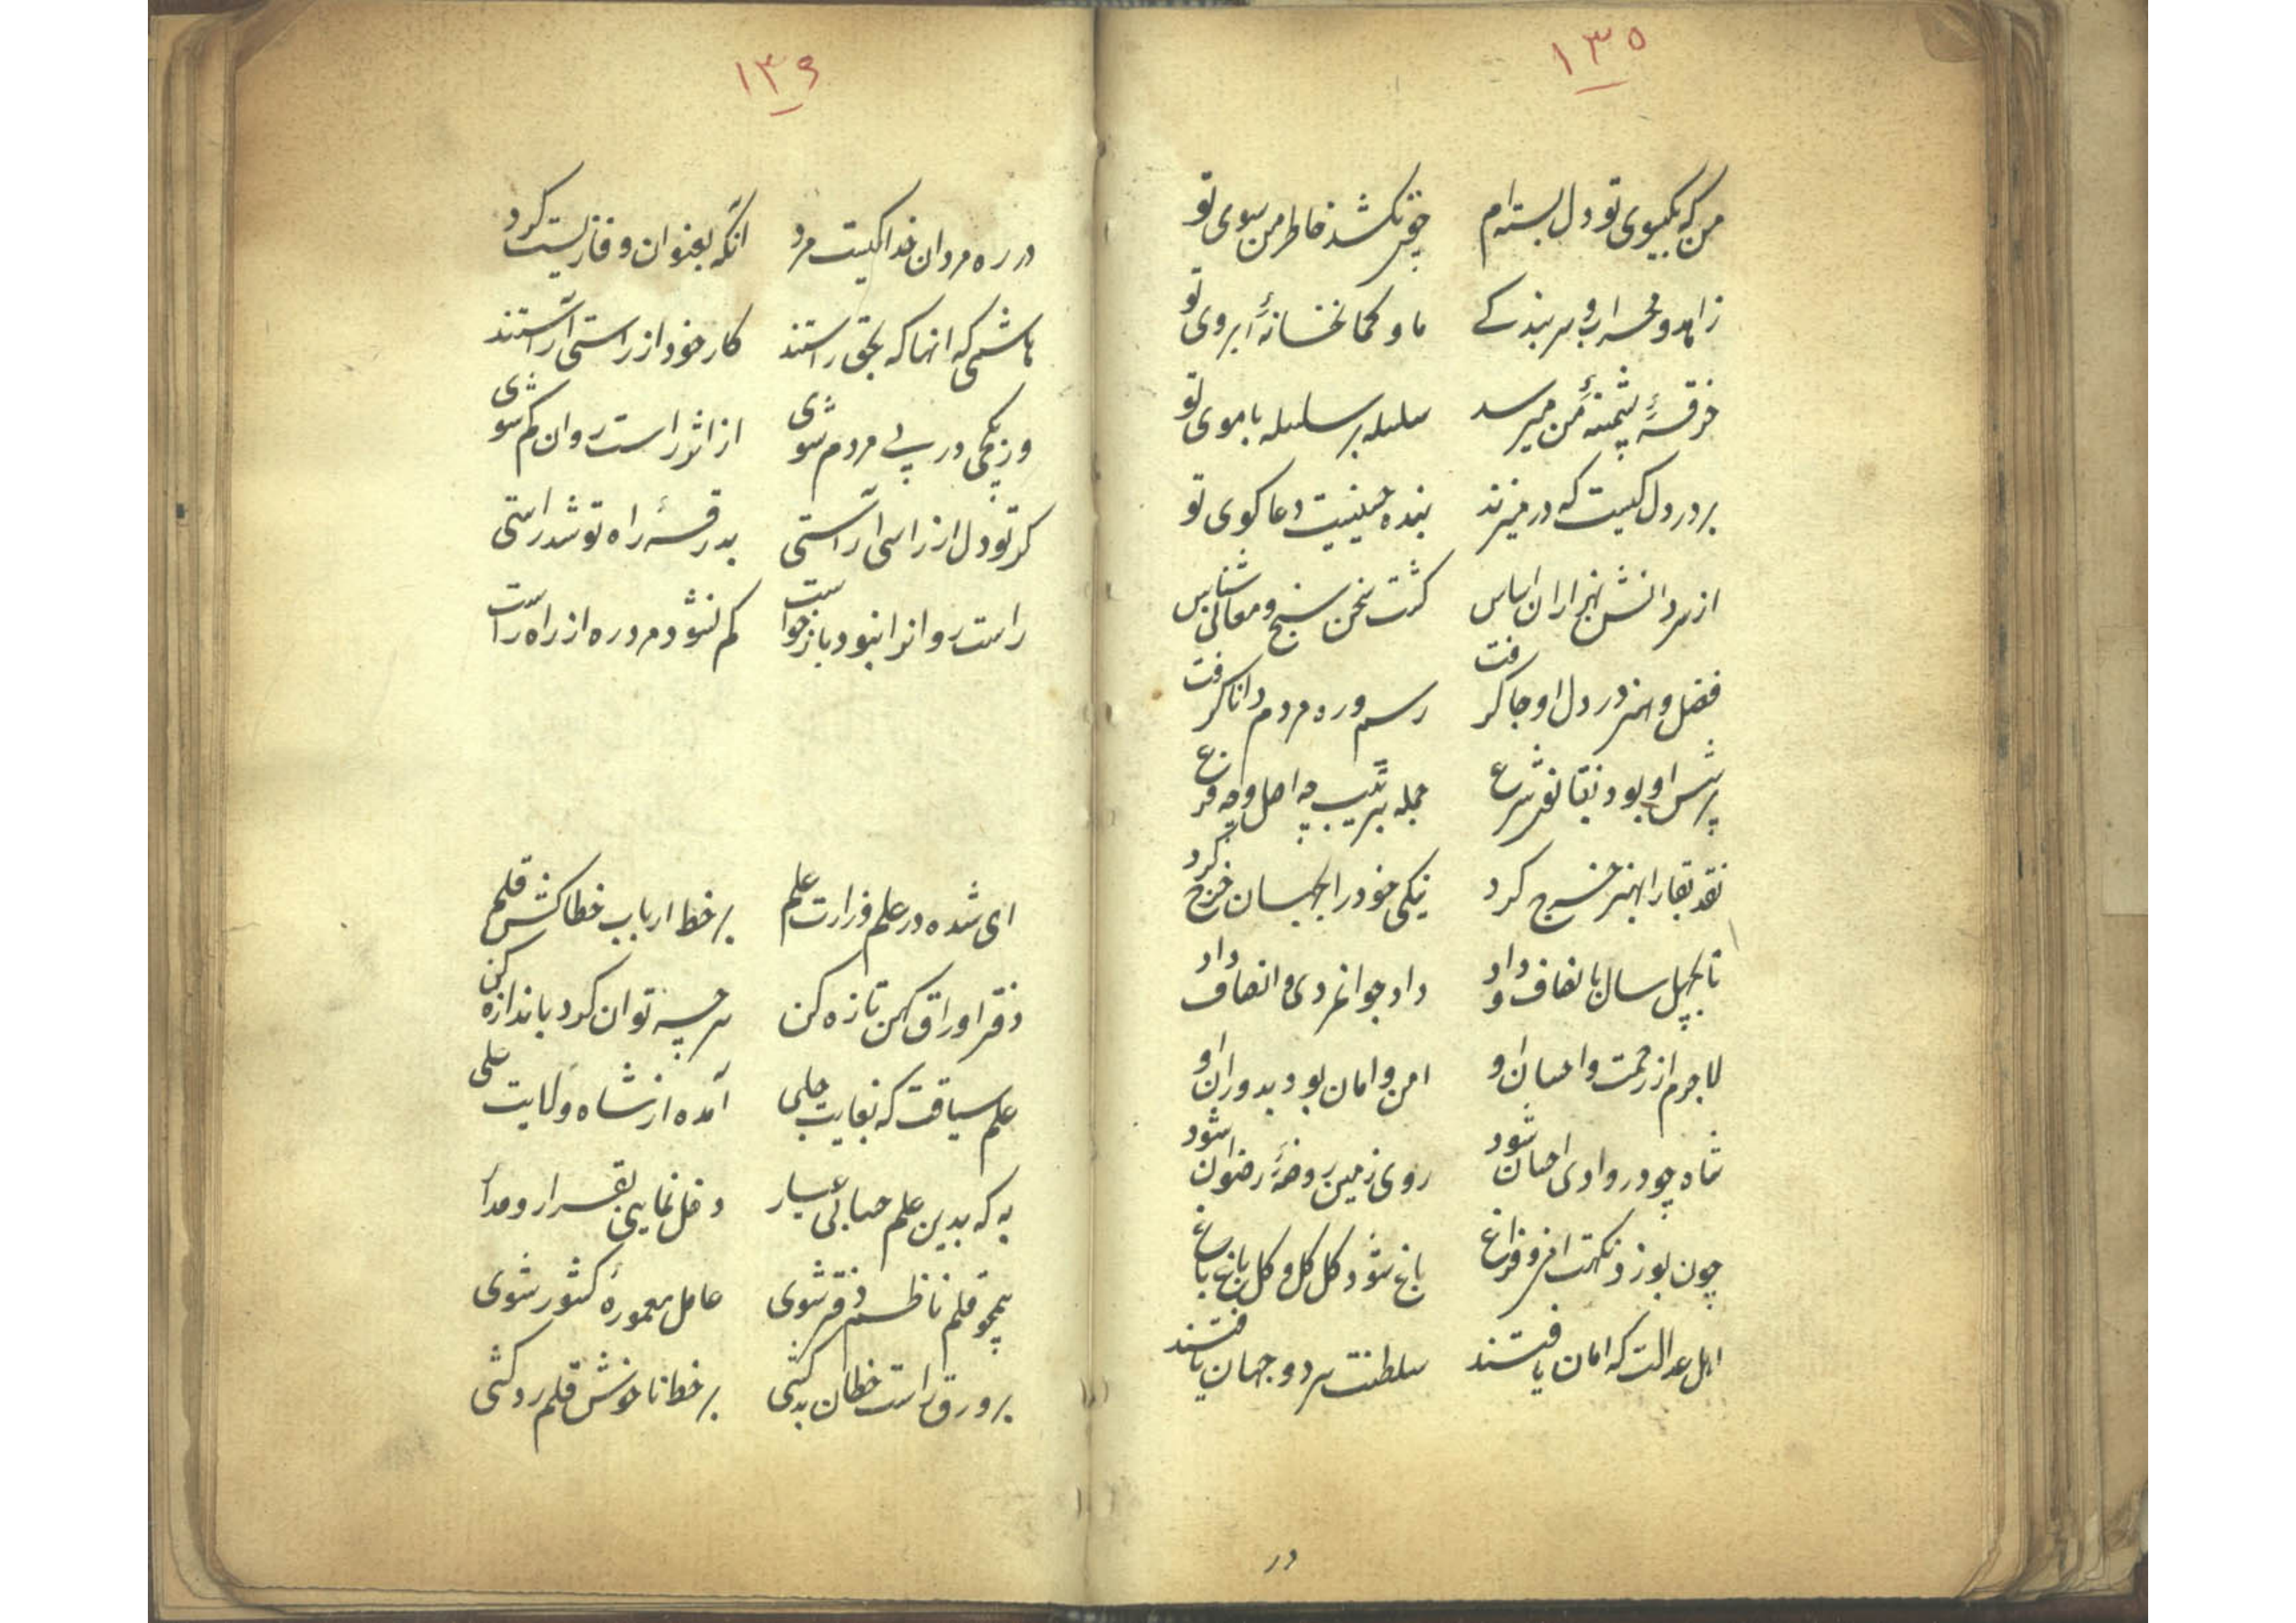 ۱۳۵
من که بگیسوی تو دل بسته‌ام چون نکشد خاطر من سوی تو
زاهد و محراب و سر بندگی ما و کمانخانهٔ ابروی تو
خرقهٔ پشمینهٔ من میرسد سلسله بر سلسله با موی تو
بر در دل کیست که در میزند بنده حسینیت دعا کوی تو
از مدد دانش هزاران اساس کشت سخن سنج و معانی شناس
فضل و هنر در دل او جا کرفت رسم و ره مردم دانا کرفت
پرسش او بود بقانون شرع جمله بترتیب چه اصل و چه فرع
نقد بقا را بهنر خرج کرد نیکی خود را بجهان خرج کرد
تا بچهل سال بانصاف و داد داد جوانمردی و انصاف داد
لاجرم از رحمت و احسان او امن و امان بود بدوران او
شاه چو در وادی احسان شود روی زمین روضهٔ رضوان شود
چون بوزد نکهت افروز فراغ باغ شود کل کل و کل باغ باغ
اهل عدالت که امان یافتند سلطنت هر دو جهان یافتند
در
۱۳۶
در ره مردان خدا کیست مرد آنکه بعنوان وفا زیست کرد
هاشمی که انها که بحق راستند کار خود از راستی آراستند
وز کجی در پی مردم شوی از اثر راست روان کم شوی
کر تو دل از راستی آراستی بدرقهٔ راه تو شد راستی
راست روانرا نبود بازخواست کم نشود مرد ره از راه راست
ای شده در علم وزارت علم بر خط ارباب خطا کش قلم
دفتر اوراق کهن تازه کن هر چه توان کرد باندازه کن
علم سیاقت که بغایت جلی آمده از شاه ولایت علی
به که بدین علم حسابی عیار دخل نمایی بقرار و مدار
همچو قلم ناظم دفتر شوی عامل معمورهٔ کشور شوی
بر ورق راست خطان بد کشی بر خط ناخوش قلم رد کشی